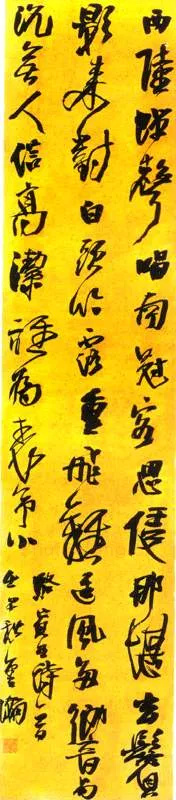 西陸蟬聲唱南冠客思侵那堪玄鬢
影来對白頭吟露重飛難進風多響易
沉無人信高潔誰為表予心
駱賓王詩